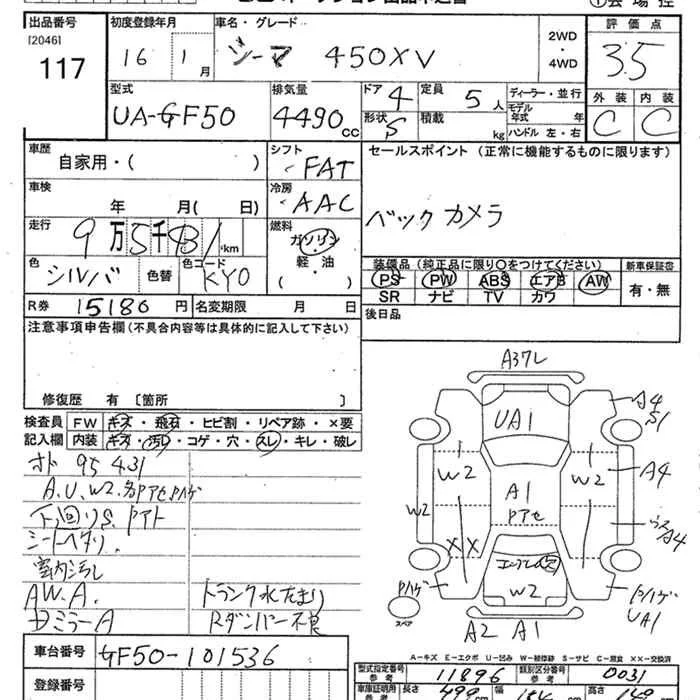 出品番号
[2046]
117
初度登録年月
16 1月
車名・グレード
シーマ 450XV
2WD
・
4WD
評価点
3.5
型式
UA-GF50
排気量
4490cc
ドア 4
形状 S
定員 5人
積載 kg
ディーラー・並行
モデル年式 年
ハンドル 左・右
外装 内装
C C
車歴
自家用・( )
シフト
FAT
セールスポイント (正常に機能するものに限ります)
バックカメラ
車検
年 月( 日)
冷房
AAC
走行
9万5千431km
燃料
ガソリン
・
軽・油
( )
色
シルバ
色替
色コード
KY0
装備品(純正品に限り○をつけてください)
PS PW ABS エアB AW
SR ナビ TV カワ
新車保証書
有・無
R券 15180円
名変期限 月 日
後日品
注意事項申告欄(不具合内容等は具体的に記入して下さい)
修復歴 有 [箇所 ]
検査員記入欄
FW キズ・飛石・ヒビ割・リペア跡・×要
内装 キズ・汚レ・コゲ・穴・スレ・キレ・破レ
オド 95431
A.U.W2.各Pアセ Pハゲ
下回リS. Pアト
シートヘタリ.
室内汚レ
AW.A. トランク水たまり
DミラーA Rダンパー不良
A37L
UA1
A4
S1
W2
W2
W2
A1
Pアセ
A4
A4
XX
W2
Pハゲ
UA1
スペア
A2 A1
A-キズ E-エクボ U-凹ミ W-補修跡 S-サビ C-腐食 XX-交換済
車台番号
GF50-101536
登録番号
型式指定番号
参考
11896
類別区分番号
参考
0031
車庫証明用
参考
長さ 499cm
幅
高さ